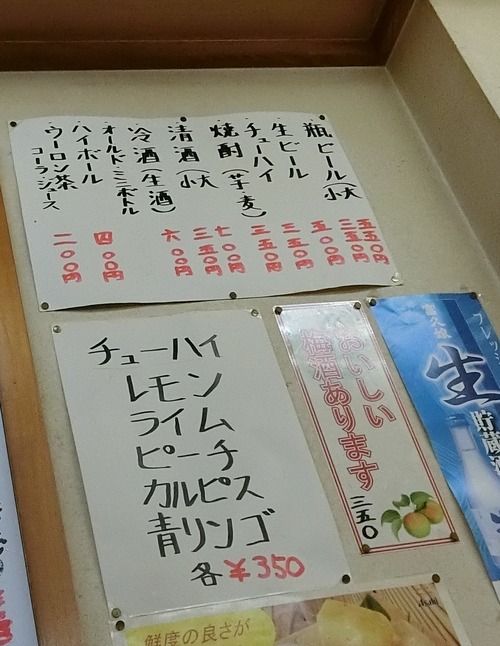 瓶ビール(大小)
五五〇円
三五〇円
生ビール
五〇〇円
チューハイ
三五〇円
焼酎(芋麦)
三五〇円
清酒(大小)
七〇〇円
三五〇円
冷酒(生酒)
六〇〇円
オールドミニボトル
ハイボール
四〇〇円
ウーロン茶
コーラジュース
二〇〇円
チューハイ
レモン
ライム
ピーチ
カルピス
青リンゴ
各¥350
おいしい
梅酒あります
三五〇
生
貯蔵
Asahi
鮮度の良さが